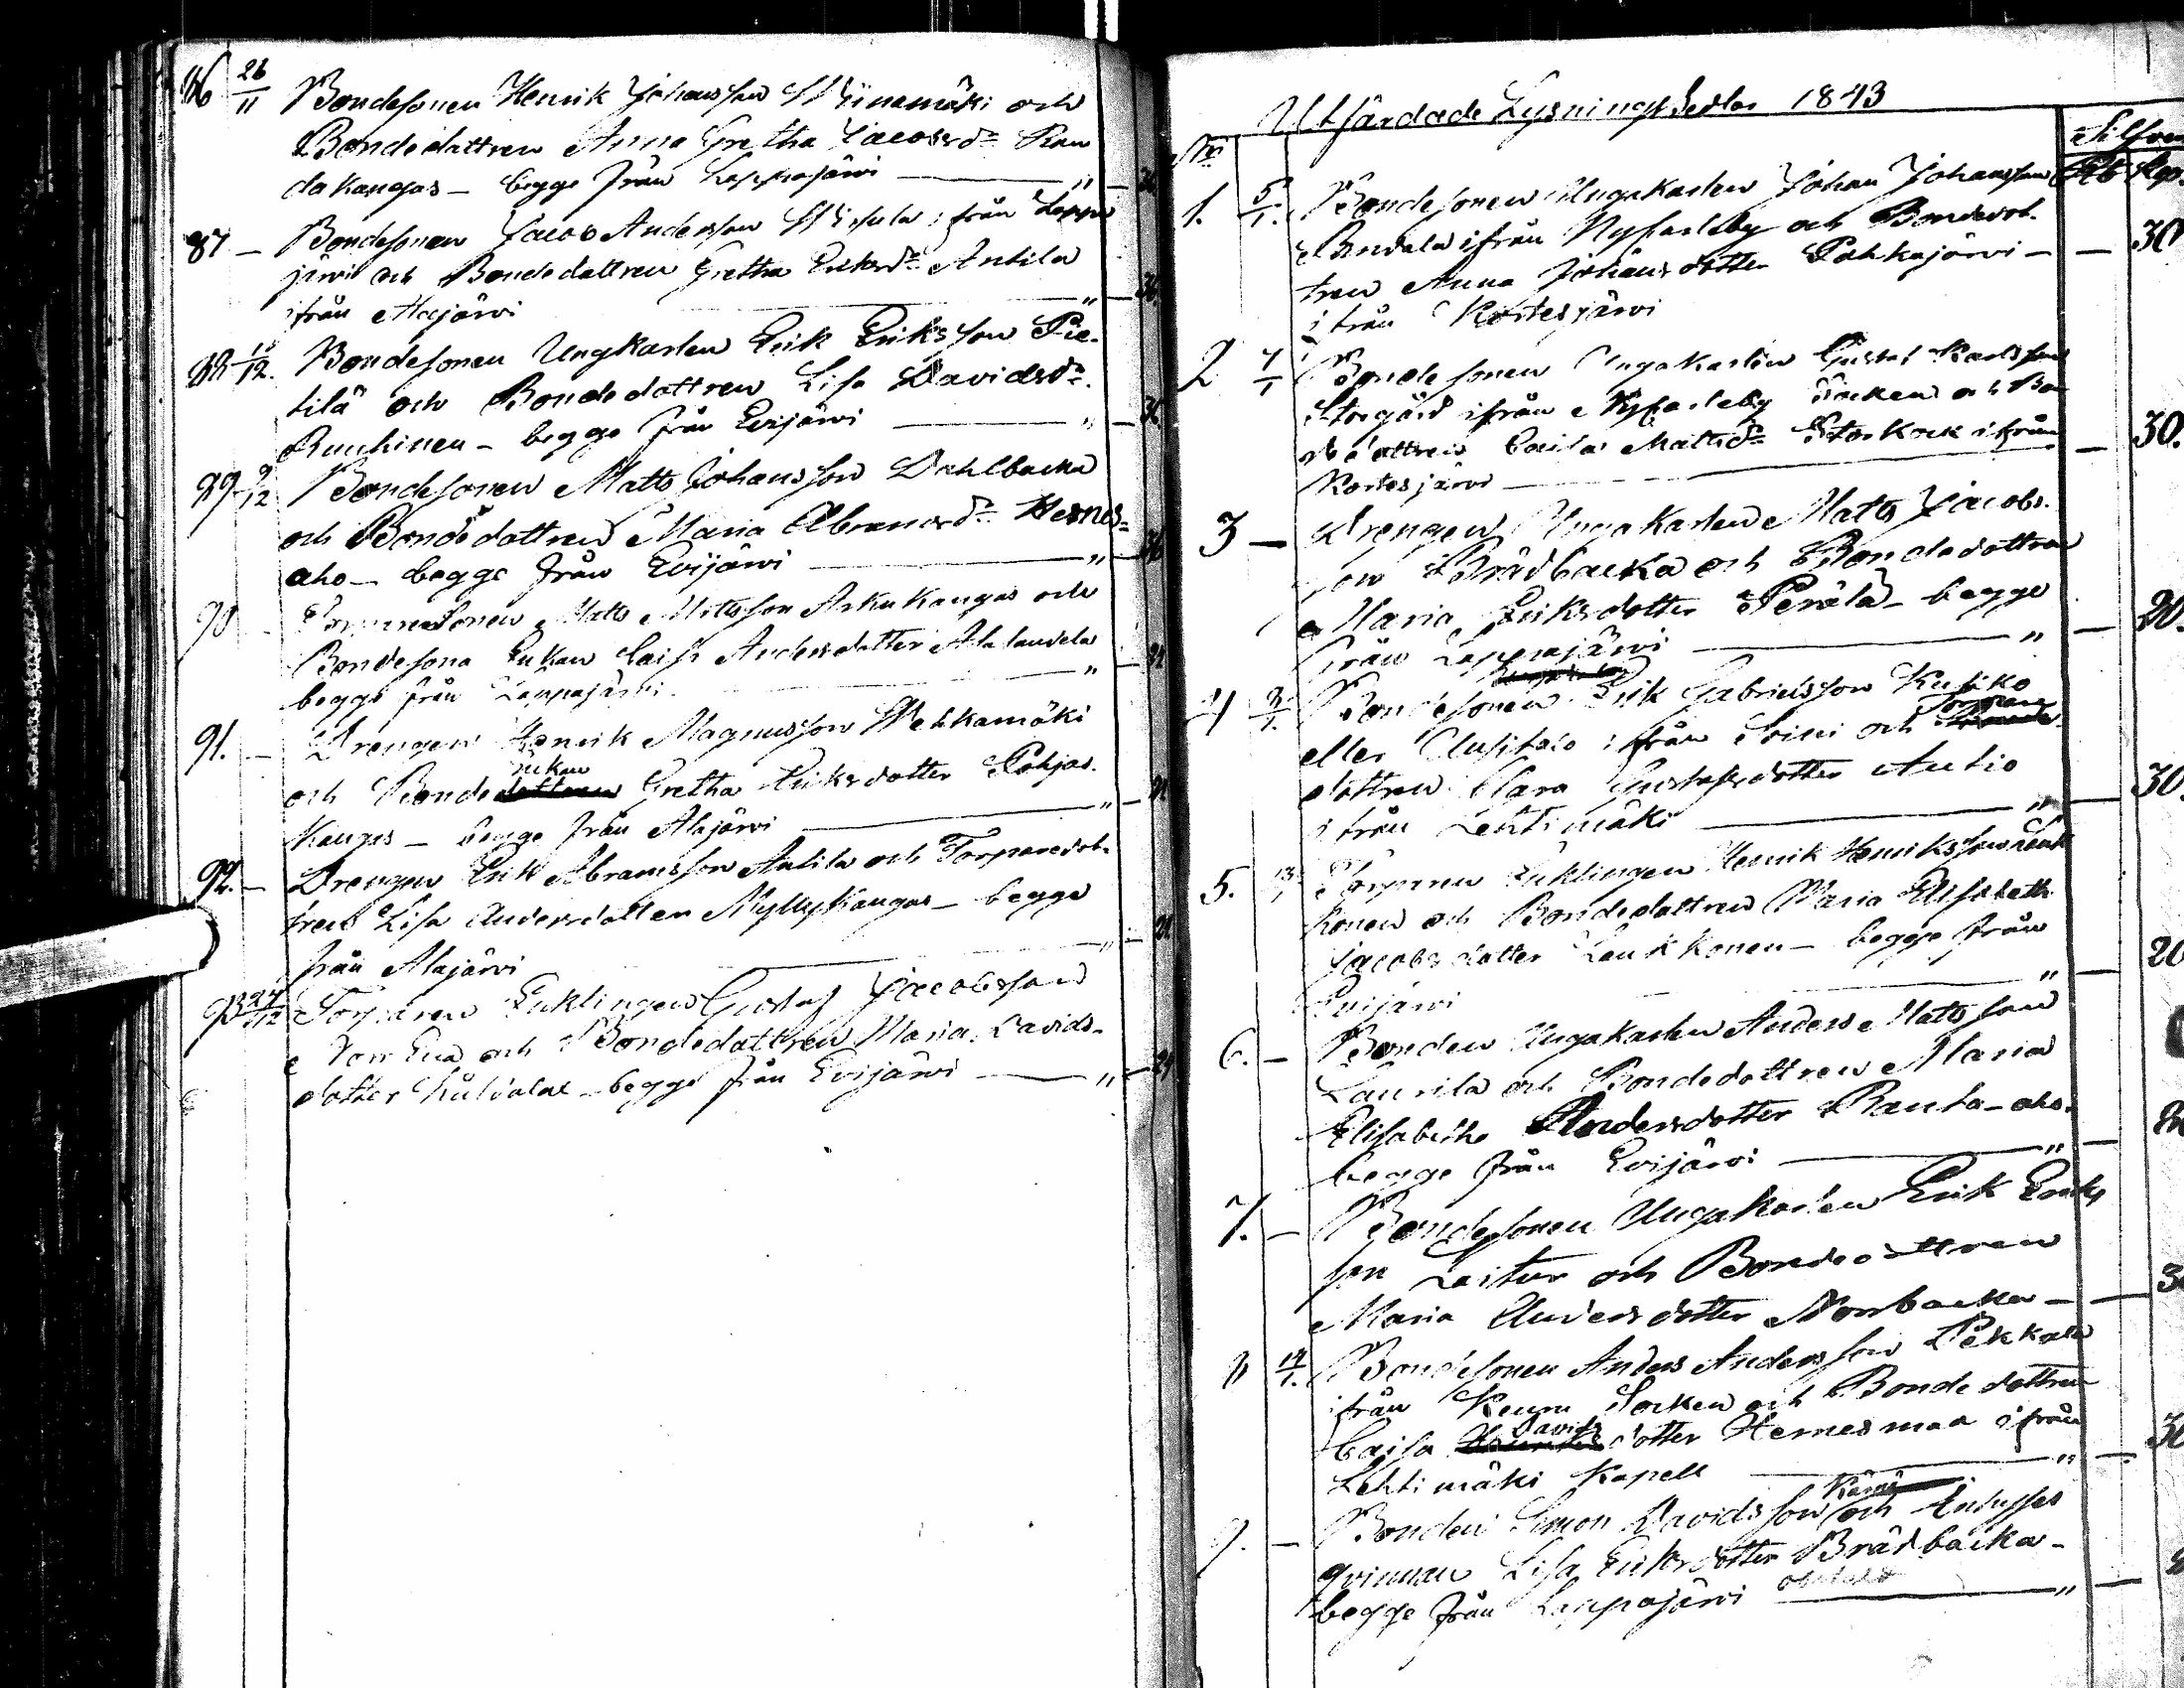 86 26/11 Bondesonen Henrik Johansson Wiinamäki och
Bondedottren Anna Gretha Jacobsdr Ran
dakangas - begge från Lappajärvi — "
87 - Bondesonen Jacob Andersson ifrån Lappa
järvi och Bondedottren Gretha Eriksdr Antila
ifrån Alajärvi — "
88 /12. Bondesonen Ungkarlen Erik Eriksson Pie-
tilä och Bondedottren Lisa Davidsdr.
begge från Evijärvi — "
89 9/12 Bondesonen Matts Johansson Dahlbacka
och Bondedottren Maria Abramsdr Hernes-
aho - begge från Evijärvi — "
90 - Matts Mattsson Askukangas och
Bondesons Enkan Caisa Andersdotter Alalandela
begge från Lappajärvi — "
91. - Drengen Henrik Magnusson Wehkamäki
Enkan
och Bonde dottren Gretha Eriksdotter Pohjas-
kangas - begge från Alajärvi — "
92. - Drengen Erik Abramsson Antila och Torparedot-
tren Lisa Andersdotter Myllykangas - begge
från Alajärvi — "
93 24/12 Torparen Enklingen Gustaf Jacobsson
och Bondedottren Maria Davids-
dotter - begge från Evijärvi — "
Utfärdade Lysnings Sedlar 1843
No Silfver
Rb Kop
1. 5/1. Bondesonen Ungakarlen Johan Johansson
ifrån Nykarleby och Bondedot-
tren Anna Johansdotter Pahkajärvi - — 30
ifrån Kortesjärvi
2 7/1 Bondesonen Ungakarlen Gustaf Karlsson
Storgård ifrån Nykarleby Socken och Bon
dedottren Caisa Mattsdr Storkock ifrån — 30.
Kortesjärvi —
3 - Drengen Ungakarlen Matts Jacobs-
son Brådbacka och Bondedottren
Maria Eriksdotter Perälä - begge
från Lappajärvi — " — 20.
4 Bondesonen Erik Gabrielsson Kuhko
Torpare
eller Uusitalo ifrån Soini och
dottren Clara Gustafsdotter Autio
ifrån Lehtimäki — " — 30.
5. 13/1 Torparen Enklingen Henrik Henriksson Lauk
konen och Bondedottren Maria Elisabeth
Jacobsdotter Laukkonen - begge från
Evijärvi — " — 20
6. - Bonden Ungakarlen Anders Mattsson
Laurila och Bondedottren Maria
Elisabetha Andersdotter Ranta-aho.
begge från Evijärvi — " —
7. - Bondesonen Ungakarlen Erik Eriks
son Laitur och Bondedottren
Maria Andersdotter Norrbacka - —
8 14/1. Bondesonen Anders Andersson Pekkala
ifrån Keuru Socken och Bondedottren
Davids
Caisa dotter Hernesmaa ifrån
Lehtimäki Kapell — " —
9. - Bonden Simon Davidsson och
qvinnan Lisa Eriksdotter Brådbacka -
begge från Lappajärvi — " —